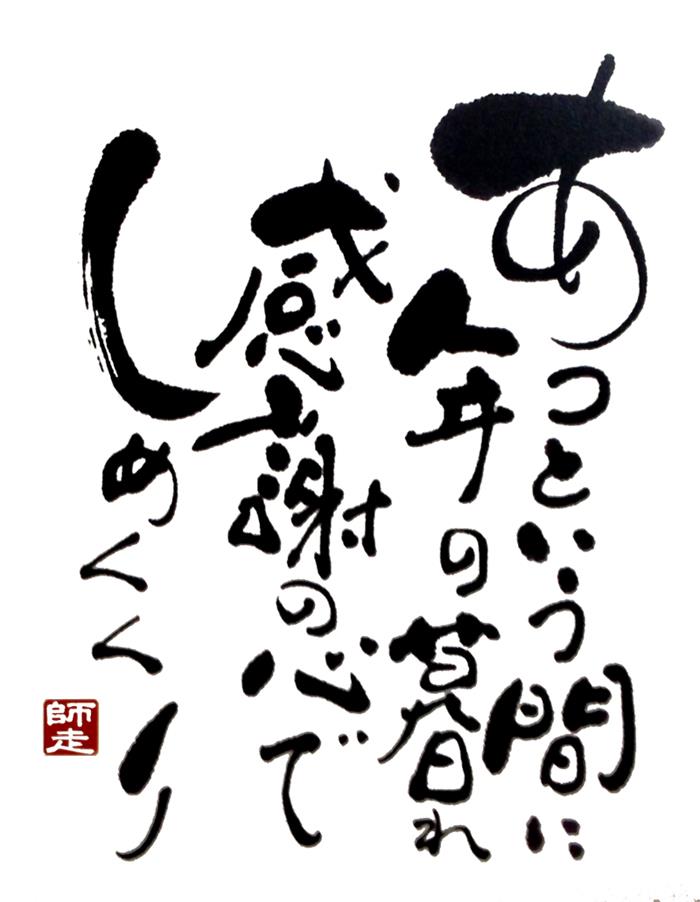 あっという間に
年の暮れ
感謝の心で
しめくくり
師走